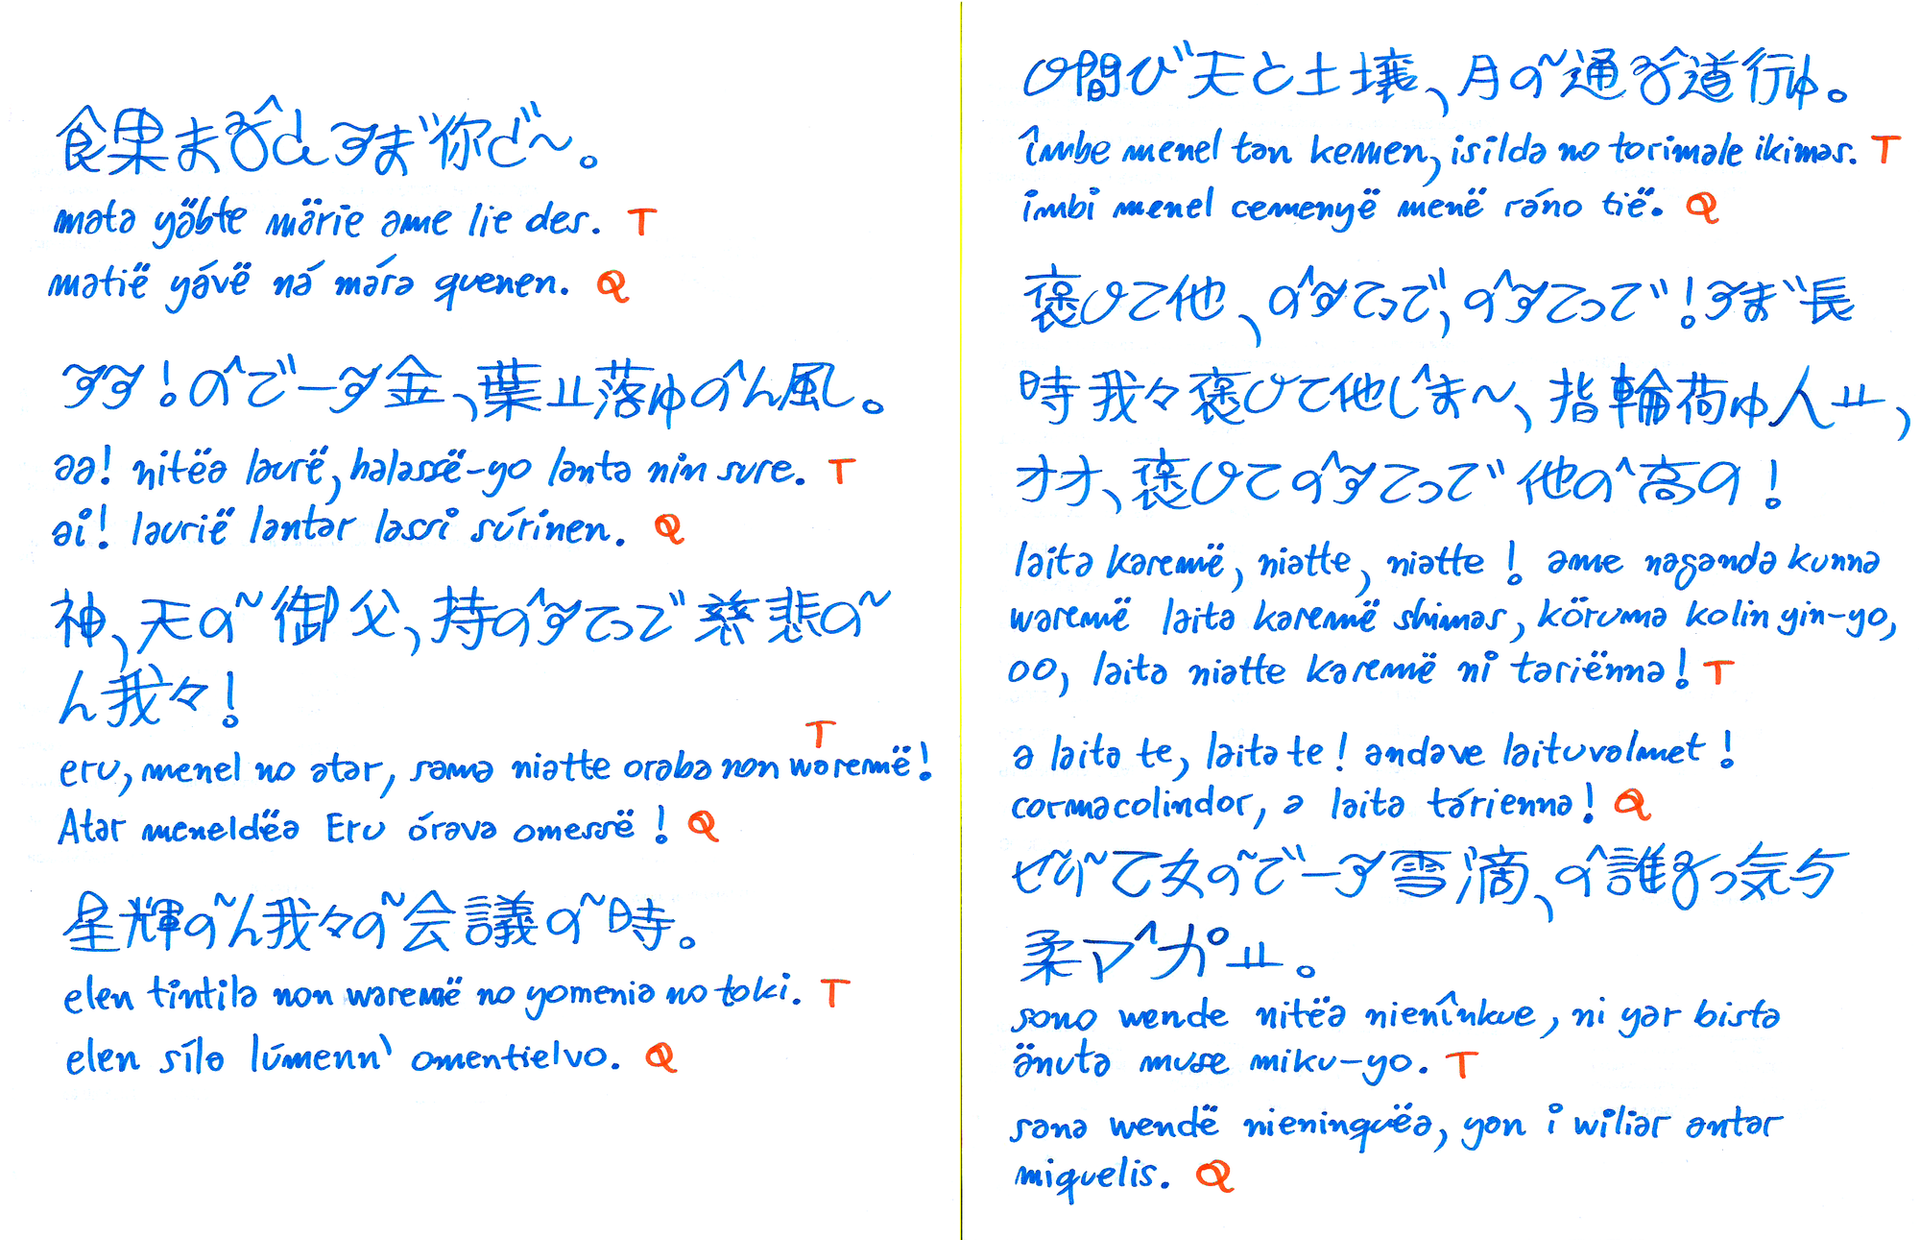 食果ま
mata yäbte märie ame lie des. T
matië yávë ná mára quenen. Q
金、葉 落ゅ 風。
aa! nitëa laurë, halassë-yo lanta nin sure. T
ai! laurië lantar lassi súrinen. Q
神、天の~御父、持 慈悲の~
ん我々!
T
eru, menel no atar, sama niatte oraba non waremë!
Atar meneldëa Eru órava omessë! Q
星輝の~ん我々の~会議の~時。
elen tintila non waremë no yomenia no toki. T
elen síla lúmenn' omentielvo. Q
間 天と土壌、月の~通 道行ゅ。
îmbe menel tan kemen, isilda no torimale ikimas. T
imbi menel cemenyë menë ráno tië. Q
褒ひて他、 長
時我々褒ひて他 、指輪荷ゅ人
オオ、褒ひて 他の^高の!
laita karemë, niatte, niatte! ame naganda kunna
waremë laita karemë shimas, köruma kolin yin-yo,
oo, laita niatte karemë ni tariënna! T
a laita te, laita te! andave laituvalmet!
cormacolindor, a laita tárienna! Q
乙女 雪滴、の^誰 気与
柔
sono wende nitëa nienînkue, ni yar bista
änuta muse miku-yo. T
sana wendë nieninquëa, yon i wiliar antar
miquelis. Q